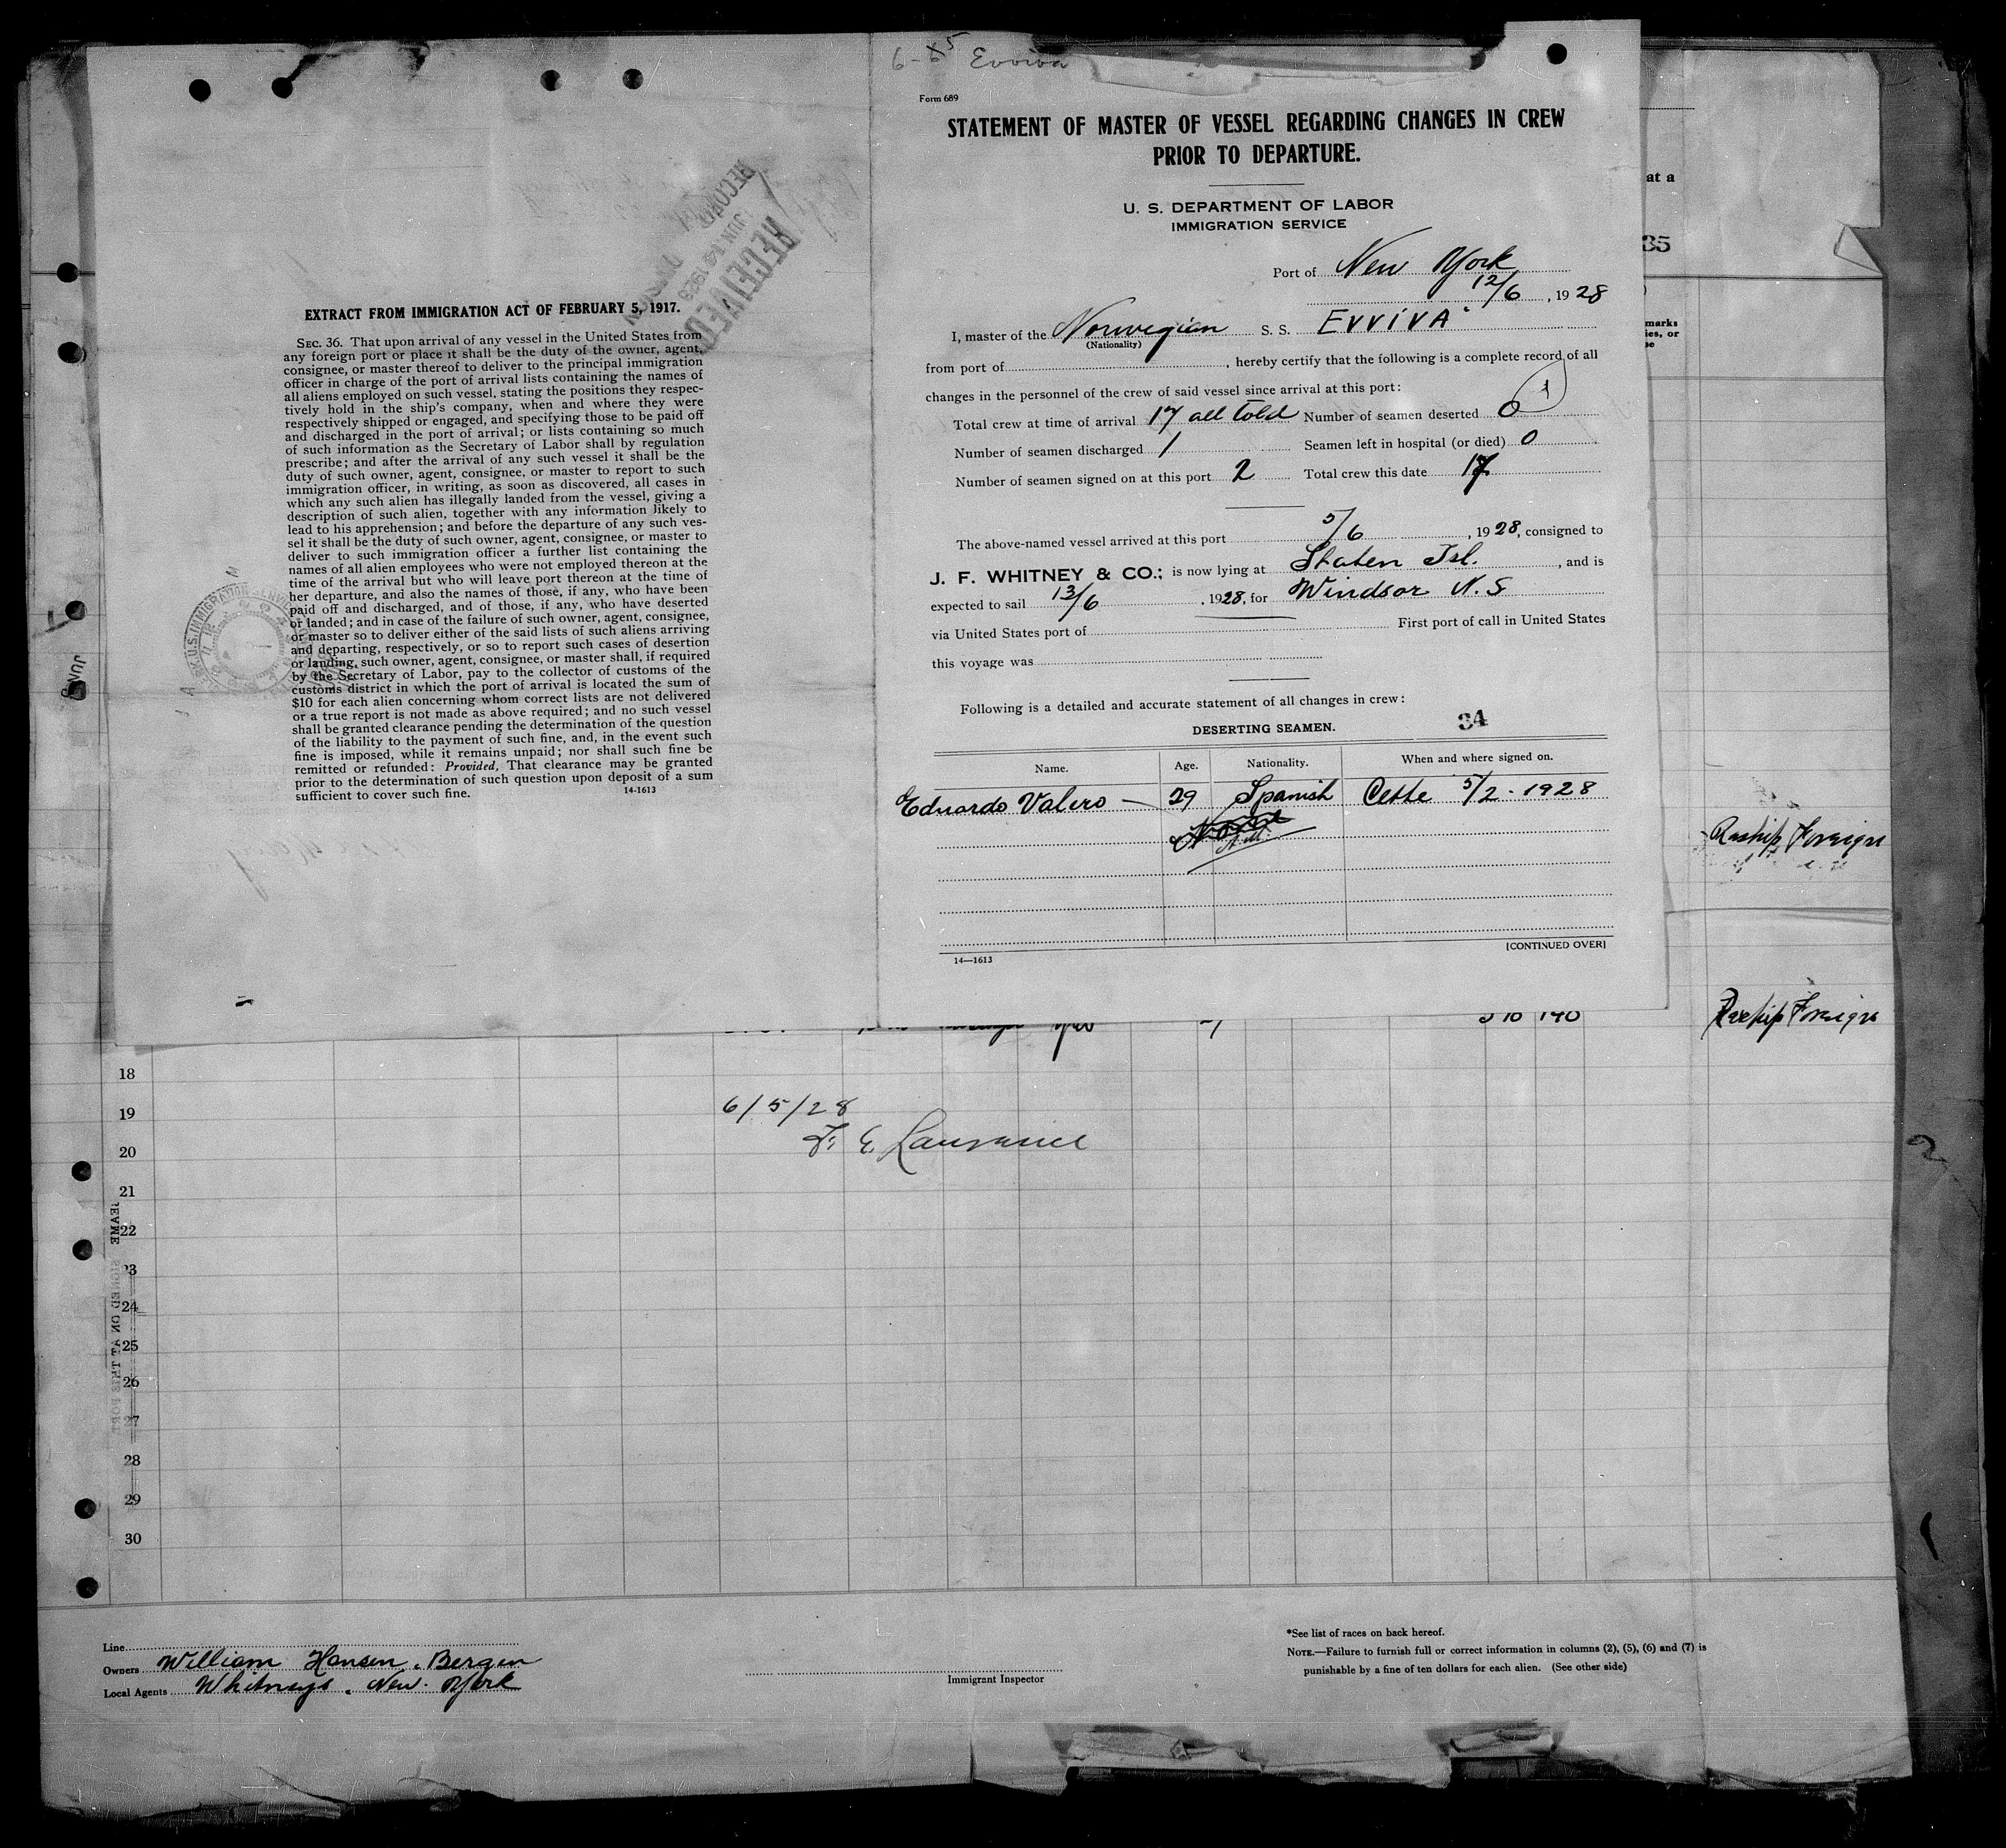 EXTRACT FROM IMMIGRATION ACT OF FEBRUARY 5, 1917.
SEC. 36. That upon arrival of any vessel in the United States from
any foreign port or place it shall be the duty of the owner, agent,
consignee, or master thereof to deliver to the principal immigration
officer in charge of the port of arrival lists containing the names of
all aliens employed on such vessel, stating the positions they respec-
tively hold in the ship's company, when and where they were
respectively shipped or engaged, and specifying those to be paid off
and discharged in the port of arrival; or lists containing so much
of such information as the Secretary of Labor shall by regulation
prescribe; and after the arrival of any such vessel it shall be the
duty of such owner, agent, consignee, or master to report to such
immigration officer, in writing, as soon as discovered, all cases in
which any such alien has illegally landed from the vessel, giving a
description of such alien, together with any information likely to
lead to his apprehension; and before the departure of any such ves-
sel it shall be the duty of such owner, agent, consignee, or master to
deliver to such immigration officer a further list containing the
names of all alien employees who were not employed thereon at the
time of the arrival but who will leave port thereon at the time of
her departure, and also the names of those, if any, who have been
paid off and discharged, and of those, if any, who have deserted
or landed; and in case of the failure of such owner, agent, consignee,
or master so to deliver either of the said lists of such aliens arriving
and departing, respectively, or so to report such cases of desertion
or landing, such owner, agent, consignee, or master shall, if required
by the Secretary of Labor, pay to the collector of customs of the
customs district in which the port of arrival is located the sum of
$10 for each alien concerning whom correct lists are not delivered
or a true report is not made as above required; and no such vessel
shall be granted clearance pending the determination of the question
of the liability to the payment of such fine, and, in the event such
fine is imposed, while it remains unpaid; nor shall such fine be
remitted or refunded: Provided, That clearance may be granted
prior to the determination of such question upon deposit of a sum
sufficient to cover such fine.
14-1613
RECEIVED
JUN 14 1928
RECORD DIVISION
U.S. IMMIGRATION SERVICE
6-5 Evviva
Form 689
STATEMENT OF MASTER OF VESSEL REGARDING CHANGES IN CREW
PRIOR TO DEPARTURE.
U. S. DEPARTMENT OF LABOR
IMMIGRATION SERVICE
Port of New York
12/6, 1928
I, master of the Norwegian S. S. EVVIVA
(Nationality)
from port of, hereby certify that the following is a complete record of all
changes in the personnel of the crew of said vessel since arrival at this port:
1
Total crew at time of arrival 17 all told Number of seamen deserted 0
Number of seamen discharged 1 Seamen left in hospital (or died) 0
Number of seamen signed on at this port 2 Total crew this date 17
The above-named vessel arrived at this port 5/6, 1928, consigned to
J. F. WHITNEY & CO.; is now lying at Staten Isl., and is
expected to sail 13/6, 1928, for Windsor N.S
via United States port of First port of call in United States
this voyage was
Following is a detailed and accurate statement of all changes in crew:
DESERTING SEAMEN. 34
Name. Age. Nationality. When and where signed on.
Eduardo Valero — 29 Spanish Cette 5/2 - 1928
[CONTINUED OVER]
14—1613
at a
35
marks
ies, or
se
Reship Foreign
Reship Foreign
yes
140
18
19
6/5/28
20
21
22
23
24
25
26
27
28
29
30
Line
Owners William Hansen, Bergen
Local Agents Whitneys, New York
Immigrant Inspector
*See list of races on back hereof.
NOTE.—Failure to furnish full or correct information in columns (2), (5), (6) and (7) is
punishable by a fine of ten dollars for each alien. (See other side)
2
1